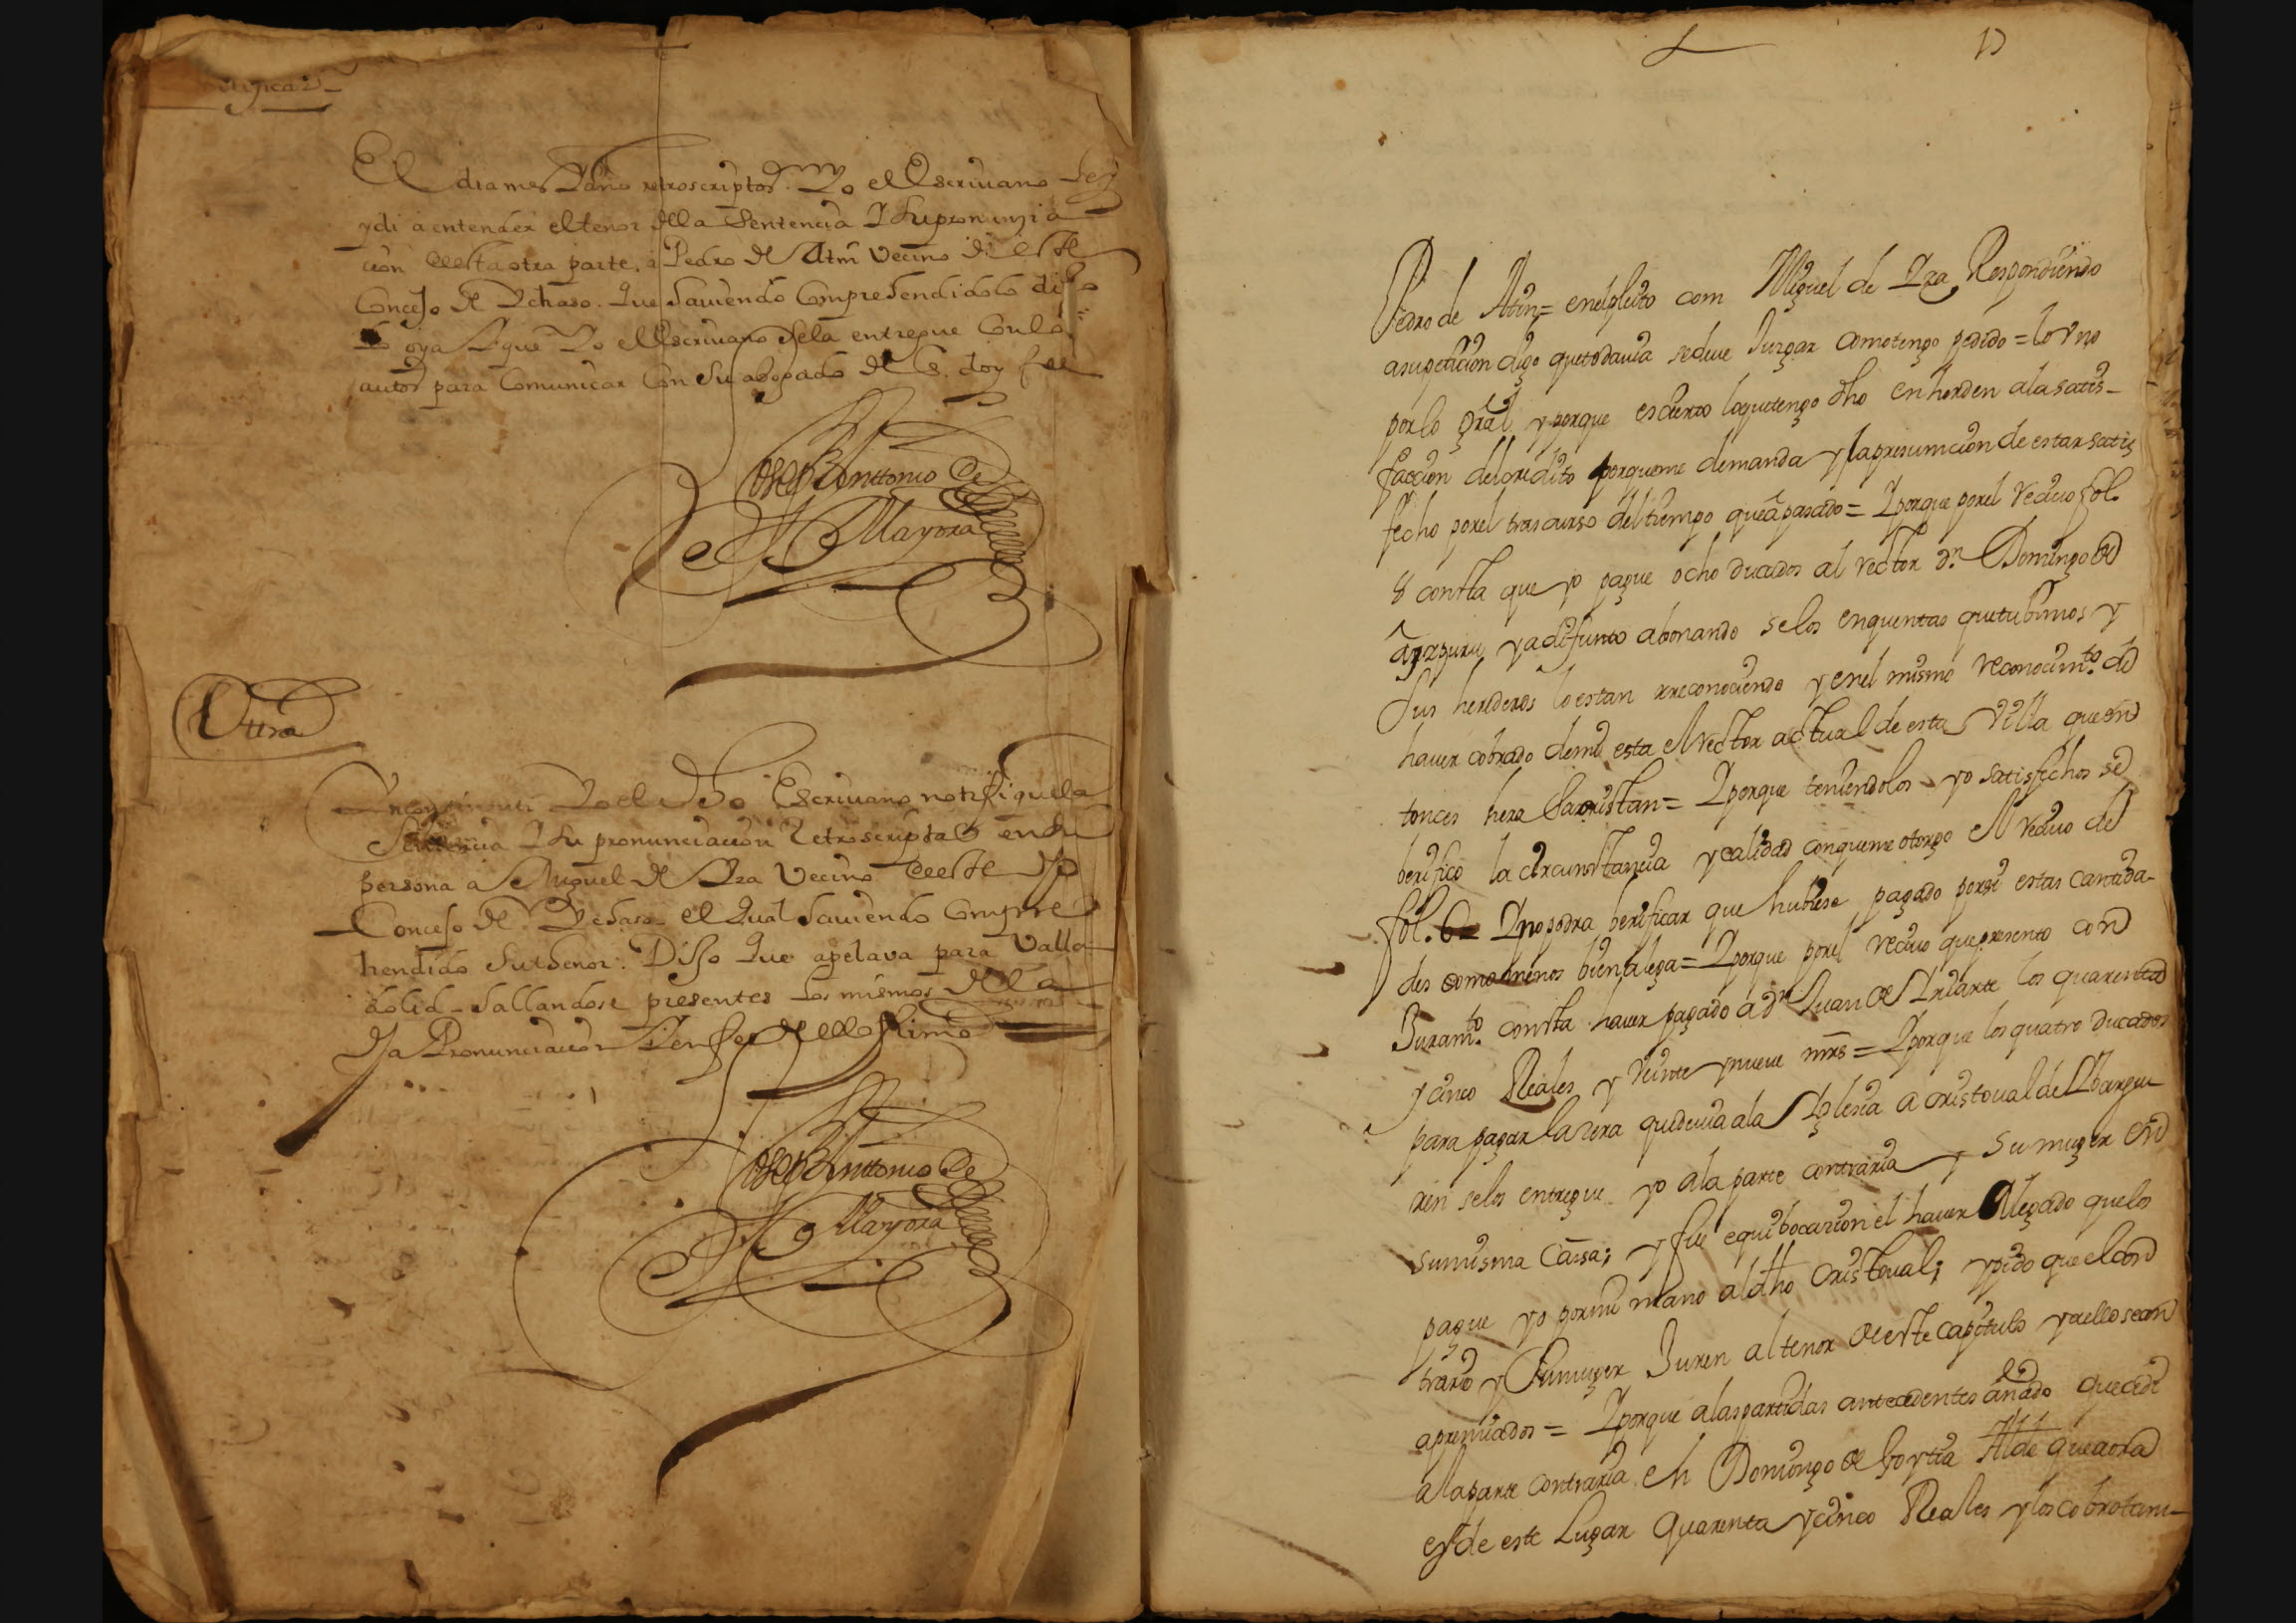 El dia mes Y año retroscriptos. Yo el Escriuano ley
y di a entender el tenor della Sentencia Y su pronunzia
cion desta otra parte, a Pedro de Atin vecino de este
Concejo de Ychaso. Que hauiendo Comprehendidolo dijo
Lo oya Y que Yo el Escriuano se la entregue con los
autos para Comunicar Con su abogado de Cª. doy fee
Joseph Anttonio De
Mayora
Ottra
Yncontinenti Yo el dho Escriuano notifique la
Sentencia Y su pronunciacion Retroscripta en su
persona a Miguel de Yza Vecino deeste dho
Concejo de Ychaso el Qual hauiendo Compre
hendido su thenor. Dijo Que apelava para Valla
dolid hallandose presentes Los mismos della
dha Pronunciacion Y en fee de ello firme
Joseph Anttonio De
Mayora
17
Pedro de Atin = en el pleito com Miguel de Yza, Respondiendo
a su peticion digo que todauia se deue Juzgar como tengo pedido = lo vno
por lo gral y porque es cierto lo que tengo dho en horden a la satis-
faccion del credito porque me demanda y la presumcion de estar satis
fecho por el trascurso del tiempo que â pasado = Y porque por el reciuo fol.
8 consta que yo pague ocho ducados al rector dn. Domingo de
ya difunto abonando selos en quentas que tubimos y
sus herederos lo estan rreconociendo y en el mismo reconocimto. de
hauer cobrado de mi esta el rector actual de esta Villa que en
tonces hera Sacristan = Y porque teniendolos yo satisfechos se
berifico la circunstancia y calidad con que me otorgo el reciuo de
fol. 6 = Y no podra berificar que hubiese pagado por si estas cantida-
des como menos bien alega = Y porque por el reciuo que presento con
Juramto. consta hauer pagado a dn Juan de Yriarte los quarenta
y cinco Reales y veinte y nueue mrs = Y porque los quatro ducados
para pagar la zera que deuia a la Yglesia a cristoual de Ybargu
ren selos entregue yo a la parte contraria y su muger en
su misma Cassa; y fue equibocacion el hauer Alegado que los
pague yo por mi mano al dho Cristoual; y pido que el con
trario y su muger Juren al tenor de este capitulo y a ello sean
apremiados = Y porque a las partidas antecedentes añado que cedi
a la parte contraria en Domingo de Goytia Allde que aora
es de este Lugar Quarenta y cinco Reales y los cobro tam-